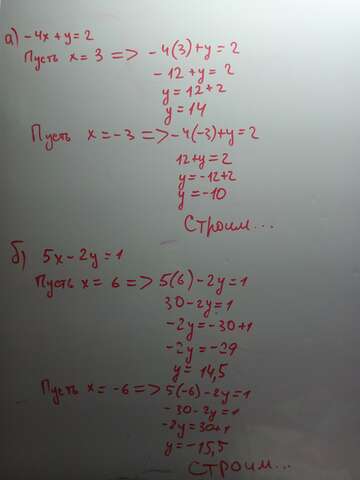 а) -4x+y=2
Пусть x=3 => -4(3)+y=2
-12+y=2
y=12+2
y=14
Пусть x=-3 => -4(-3)+y=2
12+y=2
y=-12+2
y=-10
Строим...
б) 5x-2y=1
Пусть x=6 => 5(6)-2y=1
30-2y=1
-2y=-30+1
-2y=-29
y=14,5
Пусть x=-6 => 5(-6)-2y=1
-30-2y=1
-2y=30+1
y=-15,5
Строим...